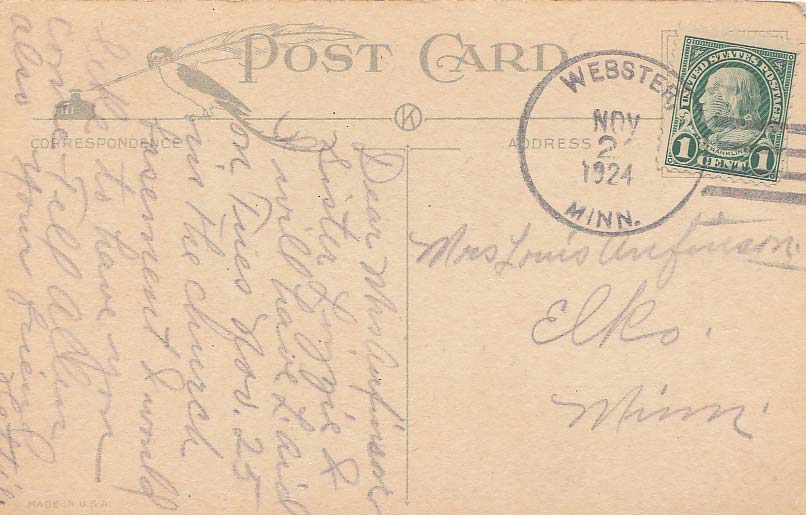 POST CARD
CORRESPONDENCE
ADDRESS
K
WEBSTER
NOV
2
1924
MINN.
UNITED STATES POSTAGE
FRANKLIN
1 CENT 1
Mrs Louis Anfinson.
Elko.
Minn.
Dear Mrs Anfinson
Sister Lizzie &
I will have L. aid
on Tues Nov. 25
in the church
basement I would
like to have you
come Tell
also your friend
MADE IN U.S.A.